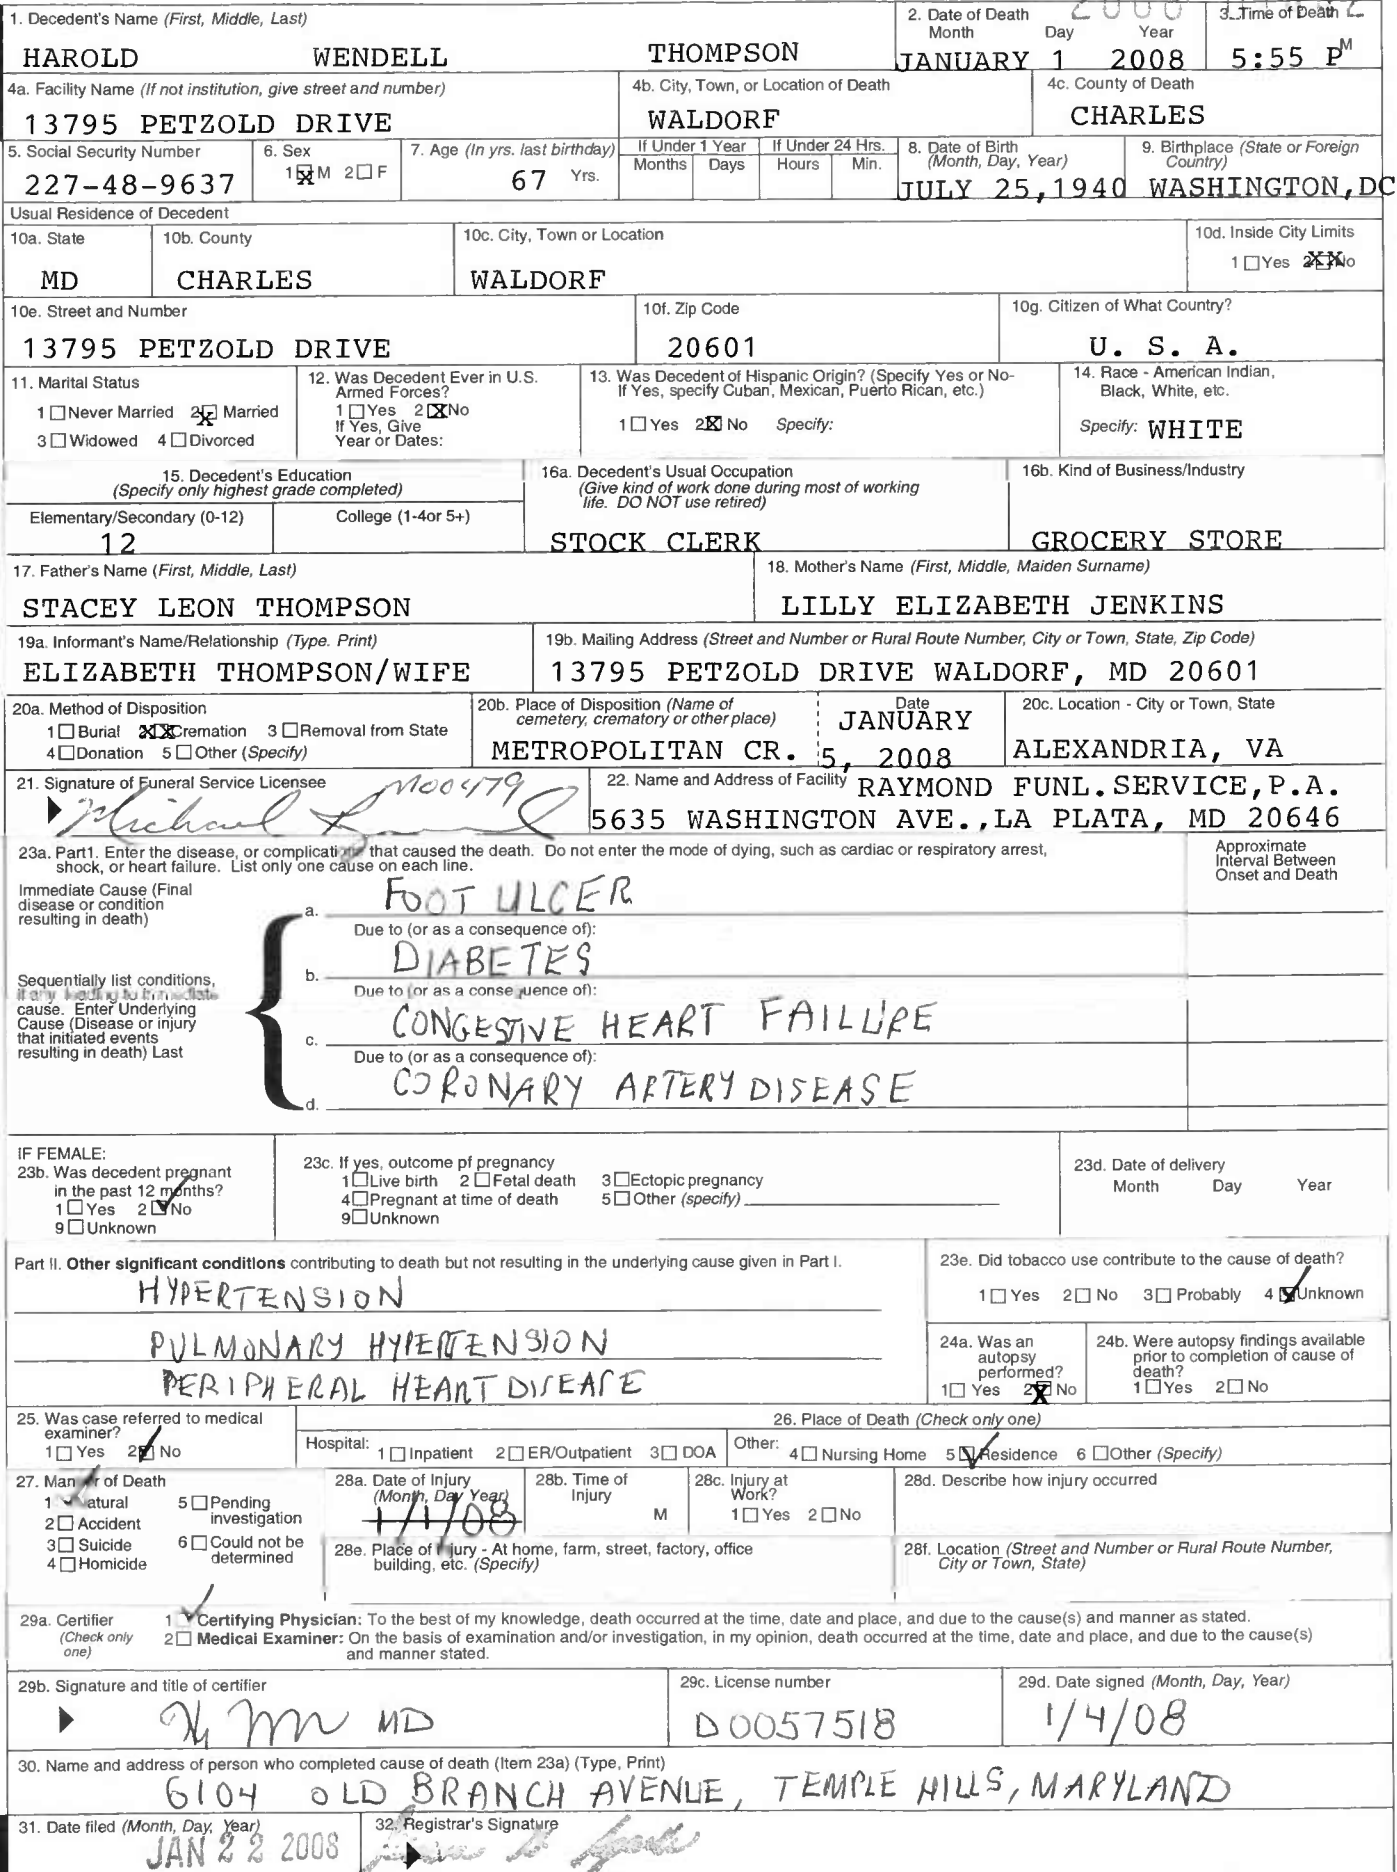 1. Decedent's Name (First, Middle, Last)
HAROLD WENDELL THOMPSON
2. Date of Death
Month Day Year
JANUARY 1 2008
3. Time of Death
5:55 P M
4a. Facility Name (If not institution, give street and number)
13795 PETZOLD DRIVE
4b. City, Town, or Location of Death
WALDORF
4c. County of Death
CHARLES
5. Social Security Number
227-48-9637
6. Sex
1 M 2 F
7. Age (In yrs. last birthday)
67 Yrs.
If Under 1 Year
Months Days
If Under 24 Hrs.
Hours Min.
8. Date of Birth
(Month, Day, Year)
JULY 25,1940
9. Birthplace (State or Foreign
Country)
WASHINGTON,DC
Usual Residence of Decedent
10a. State
MD
10b. County
CHARLES
10c. City, Town or Location
WALDORF
10d. Inside City Limits
1 Yes 2 No
10e. Street and Number
13795 PETZOLD DRIVE
10f. Zip Code
20601
10g. Citizen of What Country?
U. S. A.
11. Marital Status
1 Never Married 2 Married
3 Widowed 4 Divorced
12. Was Decedent Ever in U.S.
Armed Forces?
1 Yes 2 No
If Yes, Give
Year or Dates:
13. Was Decedent of Hispanic Origin? (Specify Yes or No-
If Yes, specify Cuban, Mexican, Puerto Rican, etc.)
1 Yes 2 No Specify:
14. Race - American Indian,
Black, White, etc.
Specify: WHITE
15. Decedent's Education
(Specify only highest grade completed)
Elementary/Secondary (0-12) College (1-4or 5+)
12
16a. Decedent's Usual Occupation
(Give kind of work done during most of working
life. DO NOT use retired)
STOCK CLERK
16b. Kind of Business/Industry
GROCERY STORE
17. Father's Name (First, Middle, Last)
STACEY LEON THOMPSON
18. Mother's Name (First, Middle, Maiden Surname)
LILLY ELIZABETH JENKINS
19a. Informant's Name/Relationship (Type. Print)
ELIZABETH THOMPSON/WIFE
19b. Mailing Address (Street and Number or Rural Route Number, City or Town, State, Zip Code)
13795 PETZOLD DRIVE WALDORF, MD 20601
20a. Method of Disposition
1 Burial 2 Cremation 3 Removal from State
4 Donation 5 Other (Specify)
20b. Place of Disposition (Name of
cemetery, crematory or other place)
METROPOLITAN CR.
Date
JANUARY
5, 2008
20c. Location - City or Town, State
ALEXANDRIA, VA
21. Signature of Funeral Service Licensee
M00479
Michael
22. Name and Address of Facility RAYMOND FUNL.SERVICE,P.A.
5635 WASHINGTON AVE.,LA PLATA, MD 20646
23a. Part1. Enter the disease, or complications that caused the death. Do not enter the mode of dying, such as cardiac or respiratory arrest,
shock, or heart failure. List only one cause on each line.
Approximate
Interval Between
Onset and Death
Immediate Cause (Final
disease or condition
resulting in death)
a. FOOT ULCER
Due to (or as a consequence of):
b. DIABETES
Due to (or as a consequence of):
c. CONGESTIVE HEART FAILURE
Due to (or as a consequence of):
d. CORONARY ARTERY DISEASE
Sequentially list conditions,
if any leading to immediate
cause. Enter Underlying
Cause (Disease or injury
that initiated events
resulting in death) Last
IF FEMALE:
23b. Was decedent pregnant
in the past 12 months?
1 Yes 2 No
9 Unknown
23c. If yes, outcome pf pregnancy
1 Live birth 2 Fetal death 3 Ectopic pregnancy
4 Pregnant at time of death 5 Other (specify)
9 Unknown
23d. Date of delivery
Month Day Year
Part II. Other significant conditions contributing to death but not resulting in the underlying cause given in Part I.
HYPERTENSION
PULMONARY HYPERTENSION
PERIPHERAL HEART DISEASE
23e. Did tobacco use contribute to the cause of death?
1 Yes 2 No 3 Probably 4 Unknown
24a. Was an
autopsy
performed?
1 Yes 2 No
24b. Were autopsy findings available
prior to completion of cause of
death?
1 Yes 2 No
25. Was case referred to medical
examiner?
1 Yes 2 No
26. Place of Death (Check only one)
Hospital: 1 Inpatient 2 ER/Outpatient 3 DOA Other: 4 Nursing Home 5 Residence 6 Other (Specify)
27. Manner of Death
1 Natural
2 Accident
3 Suicide
4 Homicide
5 Pending
investigation
6 Could not be
determined
28a. Date of Injury
(Month, Day Year)
1/1/08
28b. Time of
Injury
M
28c. Injury at
Work?
1 Yes 2 No
28d. Describe how injury occurred
28e. Place of Injury - At home, farm, street, factory, office
building, etc. (Specify)
28f. Location (Street and Number or Rural Route Number,
City or Town, State)
29a. Certifier
(Check only
one)
1 Certifying Physician: To the best of my knowledge, death occurred at the time, date and place, and due to the cause(s) and manner as stated.
2 Medical Examiner: On the basis of examination and/or investigation, in my opinion, death occurred at the time, date and place, and due to the cause(s)
and manner stated.
29b. Signature and title of certifier
MD
29c. License number
D0057518
29d. Date signed (Month, Day, Year)
1/4/08
30. Name and address of person who completed cause of death (Item 23a) (Type, Print)
6104 OLD BRANCH AVENUE, TEMPLE HILLS, MARYLAND
31. Date filed (Month, Day, Year)
JAN 22 2008
32. Registrar's Signature